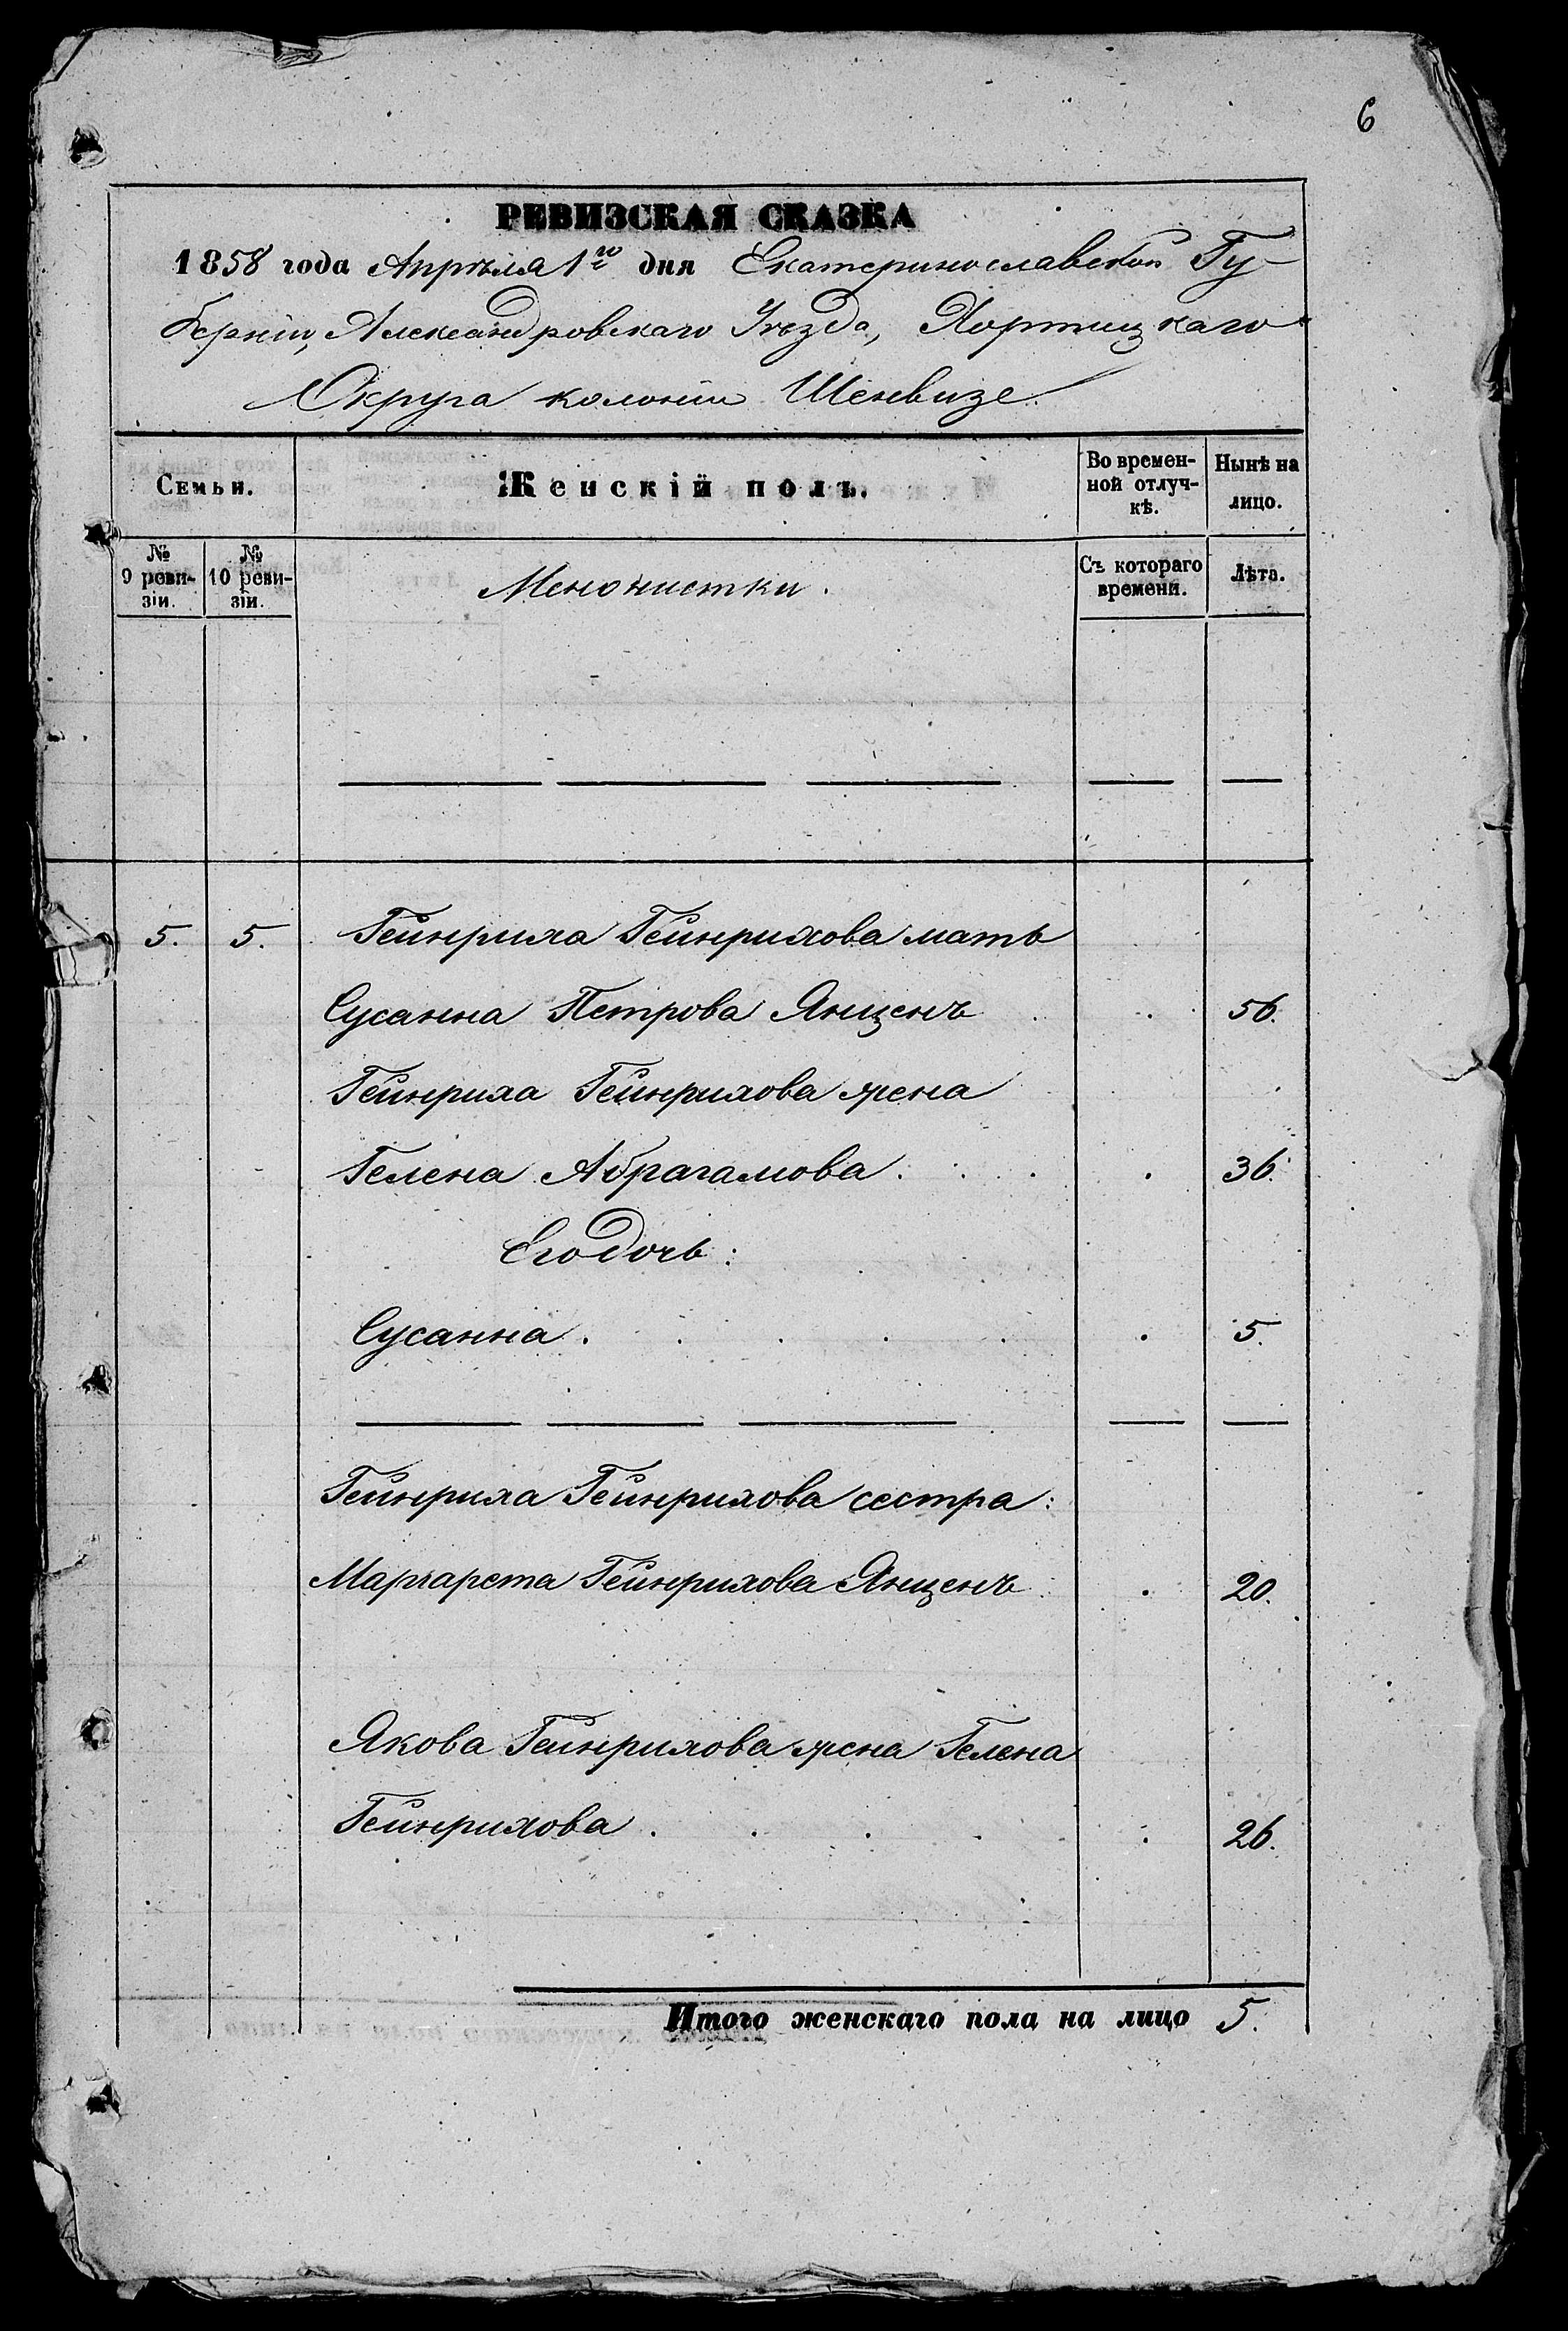 6
РЕВИЗСКАЯ СКАЗКА
1858 года Апрѣля 1го дня Екатеринославской Гу-
берніи, Александровскаго Уѣзда, Хортицкаго
Округа колоніи Шенвизе.
Семьи.
Женскій полъ.
Во времен-
ной отлуч-
кѣ.
Нынѣ на
лицо.
№
9 реви-
зіи.
№
10 реви-
зіи.
Менонистки.
Съ котораго
времени.
Лѣта.
5. 5. Гейнриха Гейнрихова мать
Сусанна Петрова Янценъ . . 56.
Гейнриха Гейнрихова жена
Гелена Абрагамова . . . . 36.
Его дочь:
Сусанна . . . . . . 5.
Гейнриха Гейнрихова сестра:
Маргарета Гейнрихова Янценъ . 20.
Якова Гейнрихова жена Гелена
Гейнрихова . . . . . 26.
Итого женскаго пола на лицо 5.